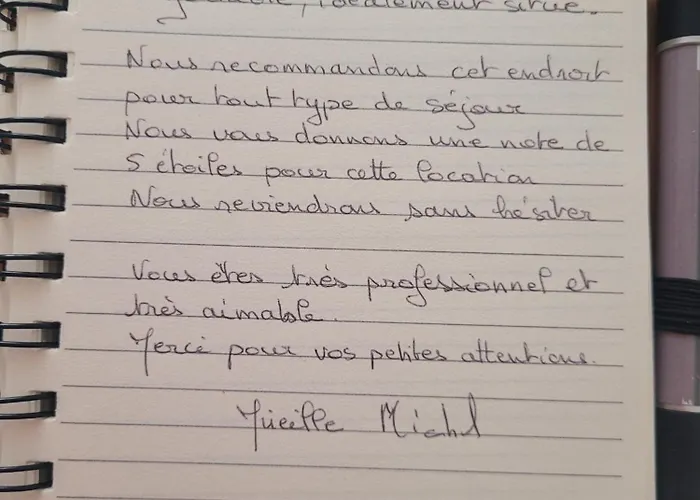 idéalement située.
Nous recommandons cet endroit
pour tout type de séjour
Nous vous donnons une note de
5 étoiles pour cette location
Nous reviendrons sans hésiter
Vous êtes très professionnel et
très aimable.
Merci pour vos petites attentions.
Michel